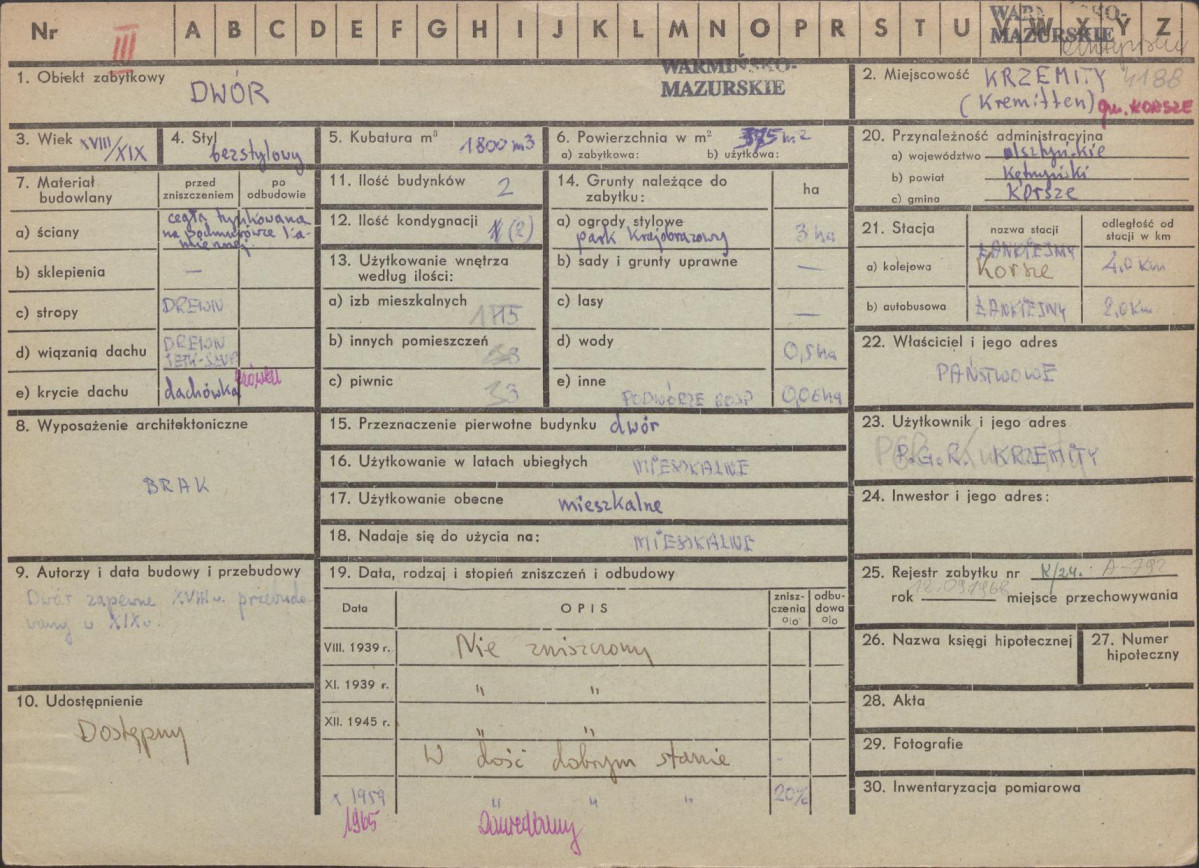 Nr III A B C D E F G H I J K L M N O P R S T U V W X Y Z
WARMIŃSKO-
MAZURSKIE
1. Obiekt zabytkowy
DWÓR
WARMIŃSKO-
MAZURSKIE
2. Miejscowość KRZEMITY 4188
(Kremitten) gm. KORSZE
3. Wiek XVIII/XIX
4. Styl bezstylowy
5. Kubatura m³ 1800 m3
6. Powierzchnia w m² 375 m²
a) zabytkowa: b) użytkowa:
7. Materiał budowlany
przed zniszczeniem
po odbudowie
a) ściany
cegła tynkowana
na podmurówce ka-
miennej
b) sklepienia —
c) stropy DREWN
d) wiązania dachu DREWN
e) krycie dachu dachówka
8. Wyposażenie architektoniczne
BRAK
9. Autorzy i data budowy i przebudowy
Dwór zapewne XVIII w. przebudo-
wany w XIX w.
10. Udostępnienie
Dostępny
11. Ilość budynków 2
12. Ilość kondygnacji 1 (2)
13. Użytkowanie wnętrza
według ilości:
a) izb mieszkalnych 15
b) innych pomieszczeń
c) piwnic 3
14. Grunty należące do
zabytku:
ha
a) ogrody stylowe
park krajobrazowy 3 ha
b) sady i grunty uprawne —
c) lasy —
d) wody 0,5 ha
e) inne
PODWÓRZE GOSP 0,06 ha
15. Przeznaczenie pierwotne budynku dwór
16. Użytkowanie w latach ubiegłych MIESZKALNE
17. Użytkowanie obecne mieszkalne
18. Nadaje się do użycia na: MIESZKALNE
19. Data, rodzaj i stopień zniszczeń i odbudowy
Data OPIS znisz-
czenia
o|o odbu-
dowa
o|o
VIII. 1939 r. Nie zniszczony
XI. 1939 r. " "
XII. 1945 r. " "
W dość dobrym stanie
x 1959 " " " 20%
1965 Zaniedbany
20. Przynależność administracyjna
a) województwo olsztyńskie
b) powiat Kętrzyński
c) gmina Korsze
21. Stacja
nazwa stacji
odległość od
stacji w km
a) kolejowa ŁANKIEJMY
Korsze 4,0 km
b) autobusowa ŁANKIEJMY 2,0 km
22. Właściciel i jego adres
PAŃSTWOWE
23. Użytkownik i jego adres
P.G.R. KRZEMITY
24. Inwestor i jego adres:
25. Rejestr zabytku nr K/24. A-792
rok 12.09.1968 miejsce przechowywania
26. Nazwa księgi hipotecznej
27. Numer
hipoteczny
28. Akta
29. Fotografie
30. Inwentaryzacja pomiarowa